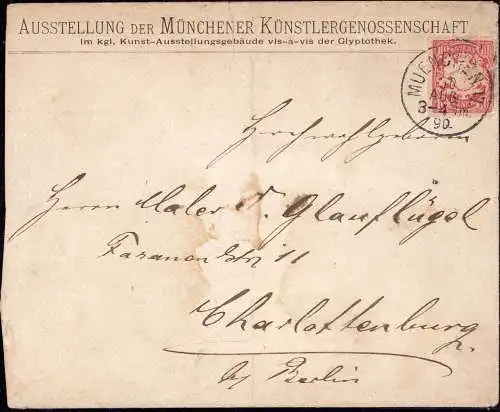 AUSSTELLUNG DER MÜNCHENER KÜNSTLERGENOSSENSCHAFT
im kgl. Kunst-Ausstellungsgebäude vis-à-vis der Glyptothek.
MUENCHEN
AUG
3-4
90.
Hochwohlgeboren
Herrn Maler F. Glauflügel
Fasanen Str 11
Charlottenburg
by Berlin